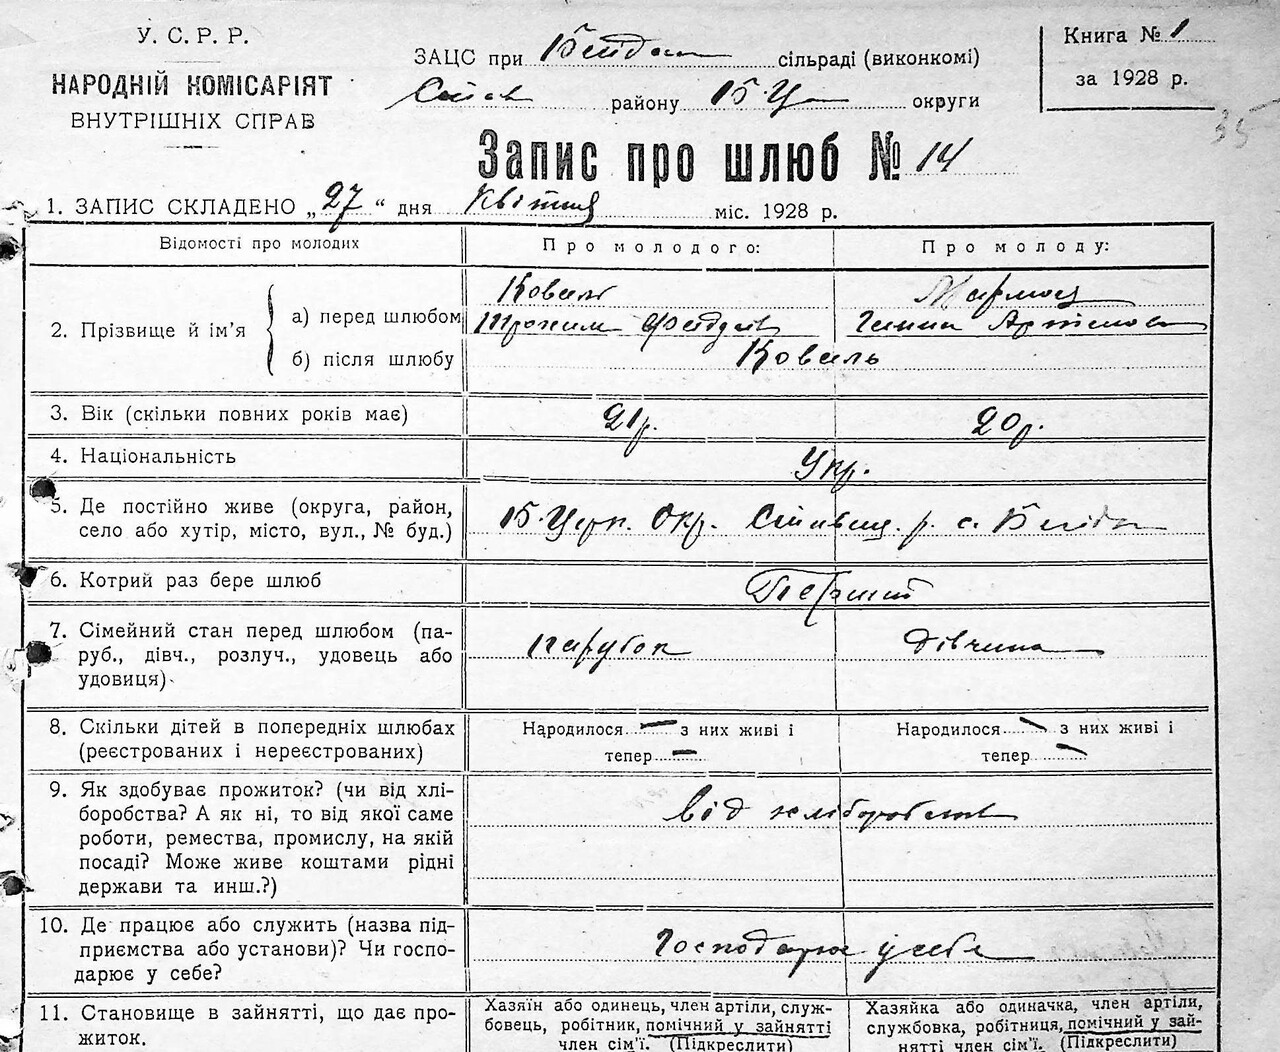 У. С. Р. Р.
НАРОДНІЙ КОМІСАРІЯТ
ВНУТРІШНІХ СПРАВ
ЗАЦС при сільраді (виконкомі)
району Б-Ц округи
Книга № 1
за 1928 р.
35
Запис про шлюб № 14
1. ЗАПИС СКЛАДЕНО „27“ дня Квітня міс. 1928 р.
Відомості про молодих
Про молодого:
Про молоду:
2. Прізвище й ім’я
а) перед шлюбом
Коваль
Трохим
Ганна
б) після шлюбу
Коваль
3. Вік (скільки повних років має)
21р.
20р.
4. Національність
Укр.
5. Де постійно живе (округа, район,
село або хутір, місто, вул., № буд.)
Б-Церк. Окр. р. с.
6. Котрий раз бере шлюб
Перший
7. Сімейний стан перед шлюбом (па-
руб., дівч., розлуч., удовець або
удовиця)
парубок
дівчина
8. Скільки дітей в попередніх шлюбах
(реєстрованих і нереєстрованих)
Народилося — з них живі і
тепер —
Народилося — з них живі і
тепер —
9. Як здобуває прожиток? (чи від хлі-
боробства? А як ні, то від якої саме
роботи, ремества, промислу, на якій
посаді? Може живе коштами рідні
держави та инш.?)
від хліборобства
10. Де працює або служить (назва під-
приємства або установи)? Чи госпо-
дарює у себе?
Господарює у себе
11. Становище в зайнятті, що дає про-
житок.
Хазяїн або одинець, член артіли, служ-
бовець, робітник, помічний у зайнятті
член сім’ї. (Підкреслити)
Хазяйка або одиначка, член артіли,
службовка, робітниця, помічний у зай-
нятті член сім’ї. (Підкреслити)